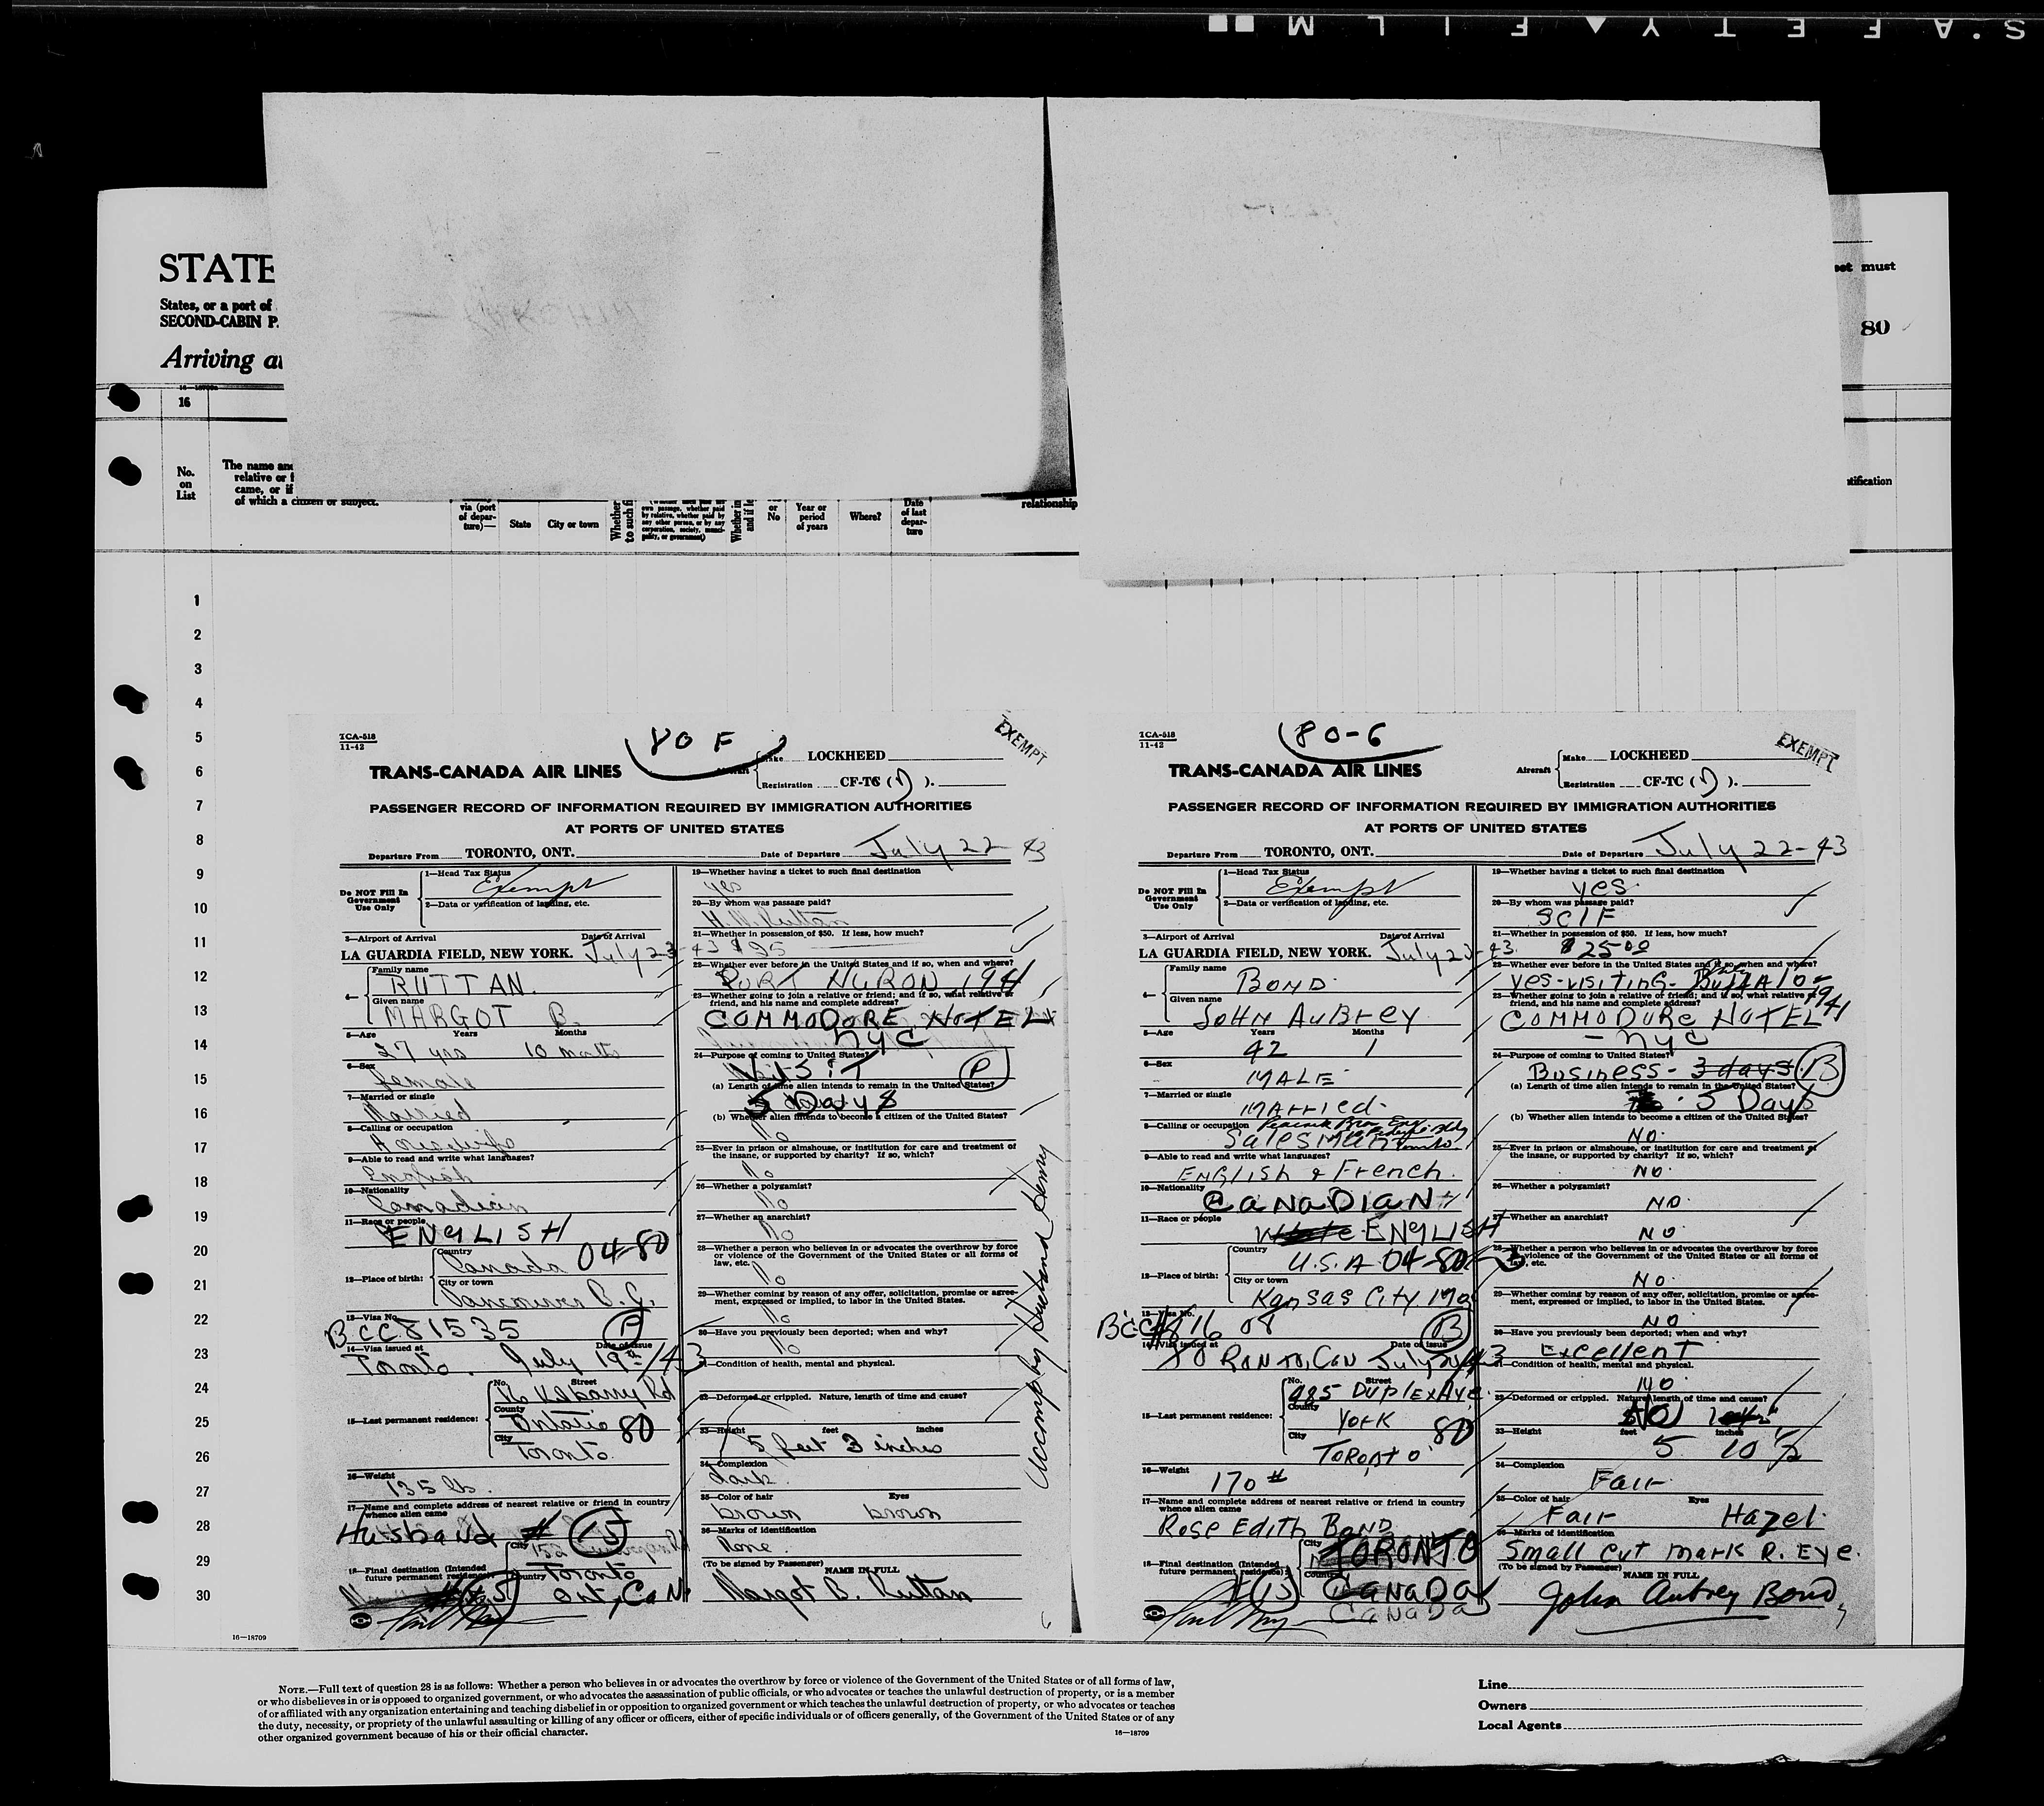 SAFETY FILM
STATE
States, or a port of
SECOND-CABIN P.
Arriving at
set must
80
16
No. on List
The name and
relative or f
came, or if
of which a citizen or subject.
via (port of depar-ture)—
State
City or town
Whether
to such fi
own passage, whether paid
by relative, whether paid by
any other person, or by any
corporation, society, munici-
pality, or government)
Whether in
and if le
or No
Year or period of years
Where?
Date of last depar-ture
relationship
ntification
1
2
3
4
5
6
7
8
9
10
11
12
13
14
15
16
17
18
19
20
21
22
23
24
25
26
27
28
29
30
16—18709
TCA-518
11-42
80 F
EXEMPT
TRANS-CANADA AIR LINES
Make LOCKHEED
Registration CF-TC (D).
PASSENGER RECORD OF INFORMATION REQUIRED BY IMMIGRATION AUTHORITIES
AT PORTS OF UNITED STATES
Departure From TORONTO, ONT. Date of Departure July 22-43
Do NOT Fill In Government Use Only
1—Head Tax Status
Exempt
2—Data or verification of landing, etc.
3—Airport of Arrival Date of Arrival
LA GUARDIA FIELD, NEW YORK. July 23-43
4— Family name
RUTTAN.
Given name
MARGOT B.
5—Age Years Months
27 yrs 10 months
6—Sex
female
7—Married or single
Married
8—Calling or occupation
Housewife
9—Able to read and write what languages?
English
10—Nationality
Canadian
11—Race or people
ENGLISH
12—Place of birth: Country
Canada 04-80
City or town
Vancouver B.C.
13—Visa No.
BCC 81535 (P)
14—Visa issued at Date of issue
Toronto. July 19th/43
15—Last permanent residence: No. Street
Kilbarry Rd
County
Ontario 80
City
Toronto
16—Weight
135 lbs.
17—Name and complete address of nearest relative or friend in country
whence alien came
Husband # 15
18—Final destination (Intended
future permanent residence):
City
Toronto
Country
Ont, CaN
19—Whether having a ticket to such final destination
yes
20—By whom was passage paid?
H. W. Ruttan
21—Whether in possession of $50. If less, how much?
$95
22—Whether ever before in the United States and if so, when and where?
PORT HURON 1941
23—Whether going to join a relative or friend; and if so, what relative or
friend, and his name and complete address?
COMMODORE HOTEL
NYC
24—Purpose of coming to United States?
VISIT (P)
(a) Length of time alien intends to remain in the United States?
5 Days
(b) Whether alien intends to become a citizen of the United States?
No
25—Ever in prison or almshouse, or institution for care and treatment of
the insane, or supported by charity? If so, which?
No
26—Whether a polygamist?
No
27—Whether an anarchist?
No
28—Whether a person who believes in or advocates the overthrow by force
or violence of the Government of the United States or all forms of
law, etc.
No
29—Whether coming by reason of any offer, solicitation, promise or agree-
ment, expressed or implied, to labor in the United States.
No
30—Have you previously been deported; when and why?
No
31—Condition of health, mental and physical.
32—Deformed or crippled. Nature, length of time and cause?
33—Height feet inches
5 feet 3 inches
34—Complexion
dark
35—Color of hair Eyes
brown brown
36—Marks of identification
None
(To be signed by Passenger) NAME IN FULL
Margot B. Ruttan
Accomp by Husband Henry
TCA-518
11-42
80-6
EXEMPT
TRANS-CANADA AIR LINES
Aircraft Make LOCKHEED
Registration CF-TC (D).
PASSENGER RECORD OF INFORMATION REQUIRED BY IMMIGRATION AUTHORITIES
AT PORTS OF UNITED STATES
Departure From TORONTO, ONT. Date of Departure July 22-43
Do NOT Fill In Government Use Only
1—Head Tax Status
Exempt
2—Data or verification of landing, etc.
3—Airport of Arrival Date of Arrival
LA GUARDIA FIELD, NEW YORK. July 23-43.
4— Family name
BOND.
Given name
JOHN AUBREY.
5—Age Years Months
42 1
6—Sex
MALE
7—Married or single
Married.
8—Calling or occupation
Salesman
9—Able to read and write what languages?
ENGLISH & French.
10—Nationality
CANADIAN
11—Race or people
White ENGLISH
12—Place of birth: Country
U.S.A. 04-80
City or town
Kansas City Mo
13—Visa No.
BCC # 816 08 (B)
14—Visa issued at Date of issue
TORONTO, CAN July 20/43
15—Last permanent residence: No. Street
485 Duplex Ave.
County
York 80
City
TORONTO
16—Weight
170 #
17—Name and complete address of nearest relative or friend in country
whence alien came
Rose Edith BOND
18—Final destination (Intended
future permanent residence):
City
TORONTO
Country
CANADA
CANADA
#(15)
19—Whether having a ticket to such final destination
yes.
20—By whom was passage paid?
SELF
21—Whether in possession of $50. If less, how much?
$25.00
22—Whether ever before in the United States and if so, when and where?
yes-visiting- Buffalo- 1941
23—Whether going to join a relative or friend; and if so, what relative or
friend, and his name and complete address?
COMMODORE HOTEL
- NYC
24—Purpose of coming to United States?
Business- 3 days. (B)
(a) Length of time alien intends to remain in the United States?
5 Days
(b) Whether alien intends to become a citizen of the United States?
NO.
25—Ever in prison or almshouse, or institution for care and treatment of
the insane, or supported by charity? If so, which?
NO.
26—Whether a polygamist?
NO.
27—Whether an anarchist?
NO
28—Whether a person who believes in or advocates the overthrow by force
or violence of the Government of the United States or all forms of
law, etc.
NO.
29—Whether coming by reason of any offer, solicitation, promise or agree-
ment, expressed or implied, to labor in the United States.
NO
30—Have you previously been deported; when and why?
Excellent
31—Condition of health, mental and physical.
NO.
32—Deformed or crippled. Nature, length of time and cause?
NO
33—Height feet inches
5 10 1/2
34—Complexion
Fair
35—Color of hair Eyes
Fair Hazel.
36—Marks of identification
Small cut mark R. Eye.
(To be signed by Passenger) NAME IN FULL
John Aubrey Bond
NOTE.—Full text of question 28 is as follows: Whether a person who believes in or advocates the overthrow by force or violence of the Government of the United States or of all forms of law,
or who disbelieves in or is opposed to organized government, or who advocates the assassination of public officials, or who advocates or teaches the unlawful destruction of property, or is a member
of or affiliated with any organization entertaining and teaching disbelief in or opposition to organized government or which teaches the unlawful destruction of property, or who advocates or teaches
the duty, necessity, or propriety of the unlawful assaulting or killing of any officer or officers, either of specific individuals or of officers generally, of the Government of the United States or of any
other organized government because of his or their official character.
16—18709
Line
Owners
Local Agents